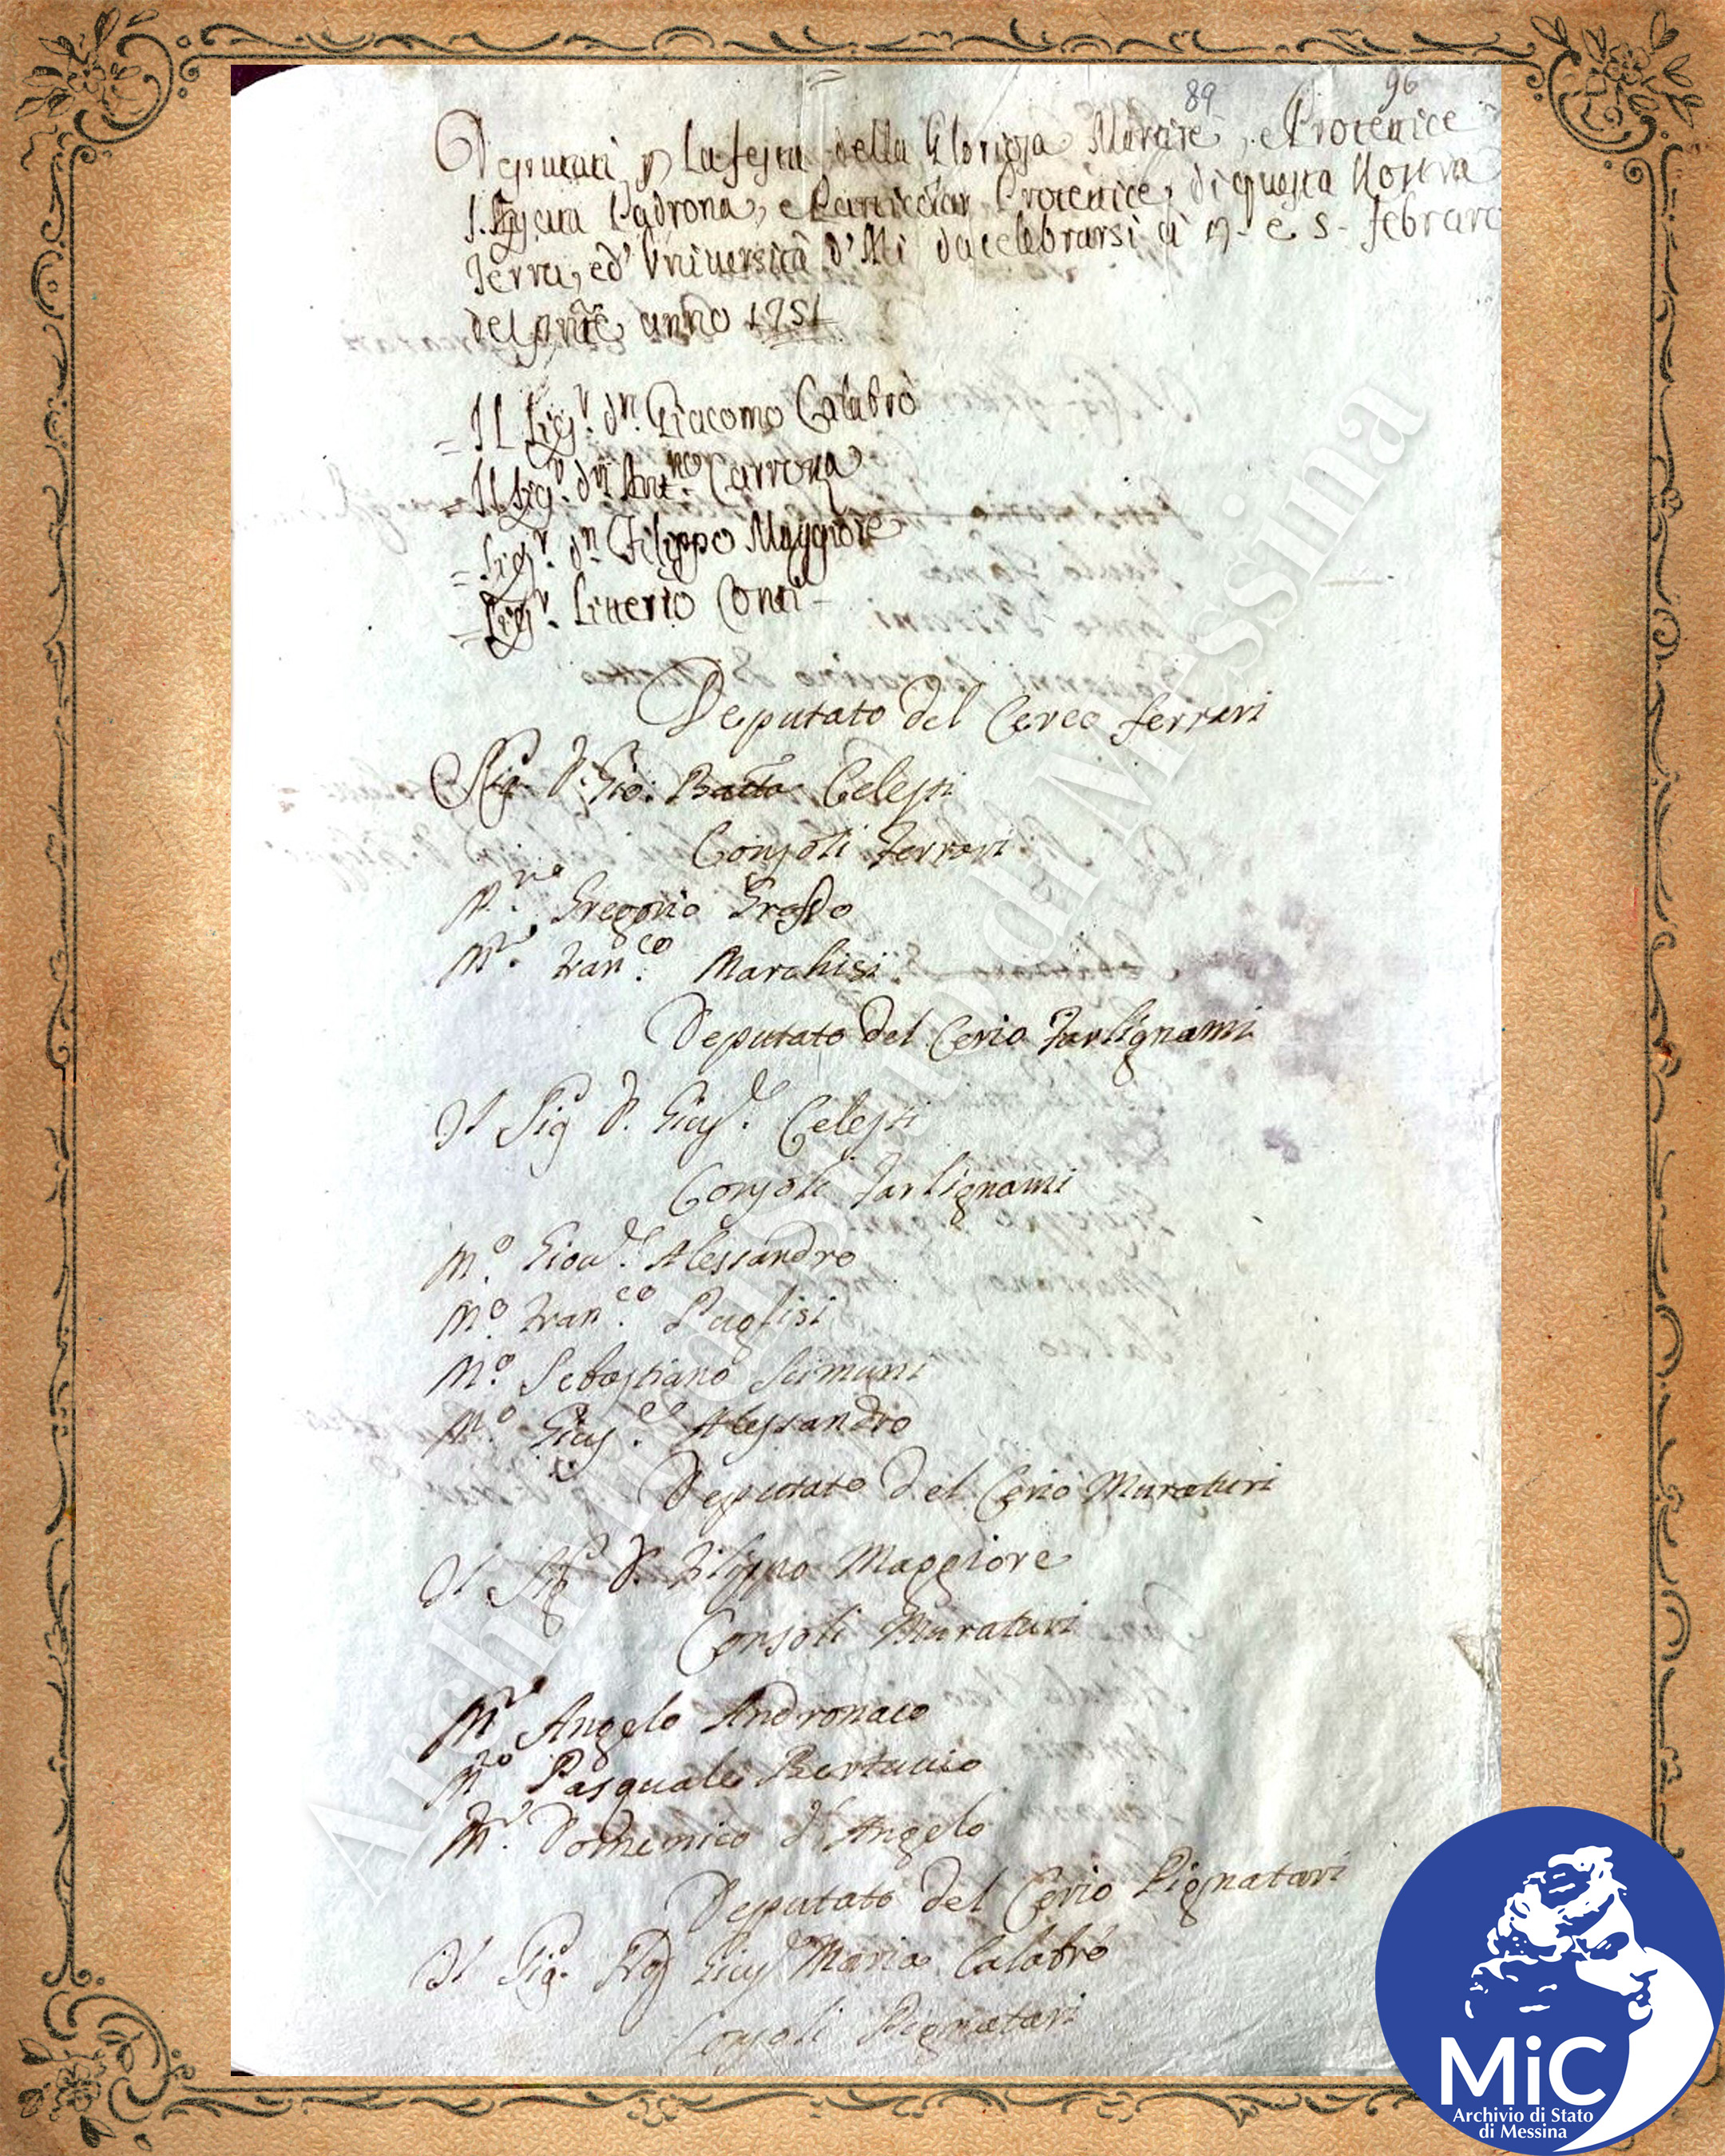 89 96
Deputati p La festa della Gloriosa Martire, e Protettrice
S. Agata Padrona, e Particolar Protettrice, di questa Nostra
Terra, ed' Università d'Alì da celebrarsi à 4- e 5- febraro
del pnte anno 1751
= Il Sigr. dn. Giacomo Calabrò
= Il Sigr. dn Antno. Carrona
= Sigr. dn. Filippo Maggiore
= Sigr. Linerio Conti
Deputato del Cereo ferrari
Sigr D. Gio: Batta Celesti
Consoli Ferrari
Mro. Gregorio Grasso
Mro. Franco. Marchisi
Deputato del Cerio Farlignami
Il Sigr D. Giuse. Celesti
Consoli Farlignami
Mo. Giovi. Alessandro
Mo. Franco. Puglisi
Mo. Sebastiano Scimuni
Mo. Giuse. Alessandro
Deputato del Cerio Muraturi
Il Sigr D. Filippo Maggiore
Consoli Muraturi
Mro Angelo Andronaco
Mro Pasquale Bertuccio
Mro. Domenico d'Angelo
Deputato del Cerio Pignatari
Il Sigr. Giuse Maria Calabrò
Consoli Pignatari
Archivio di Stato di Messina
MiC
Archivio di Stato
di Messina